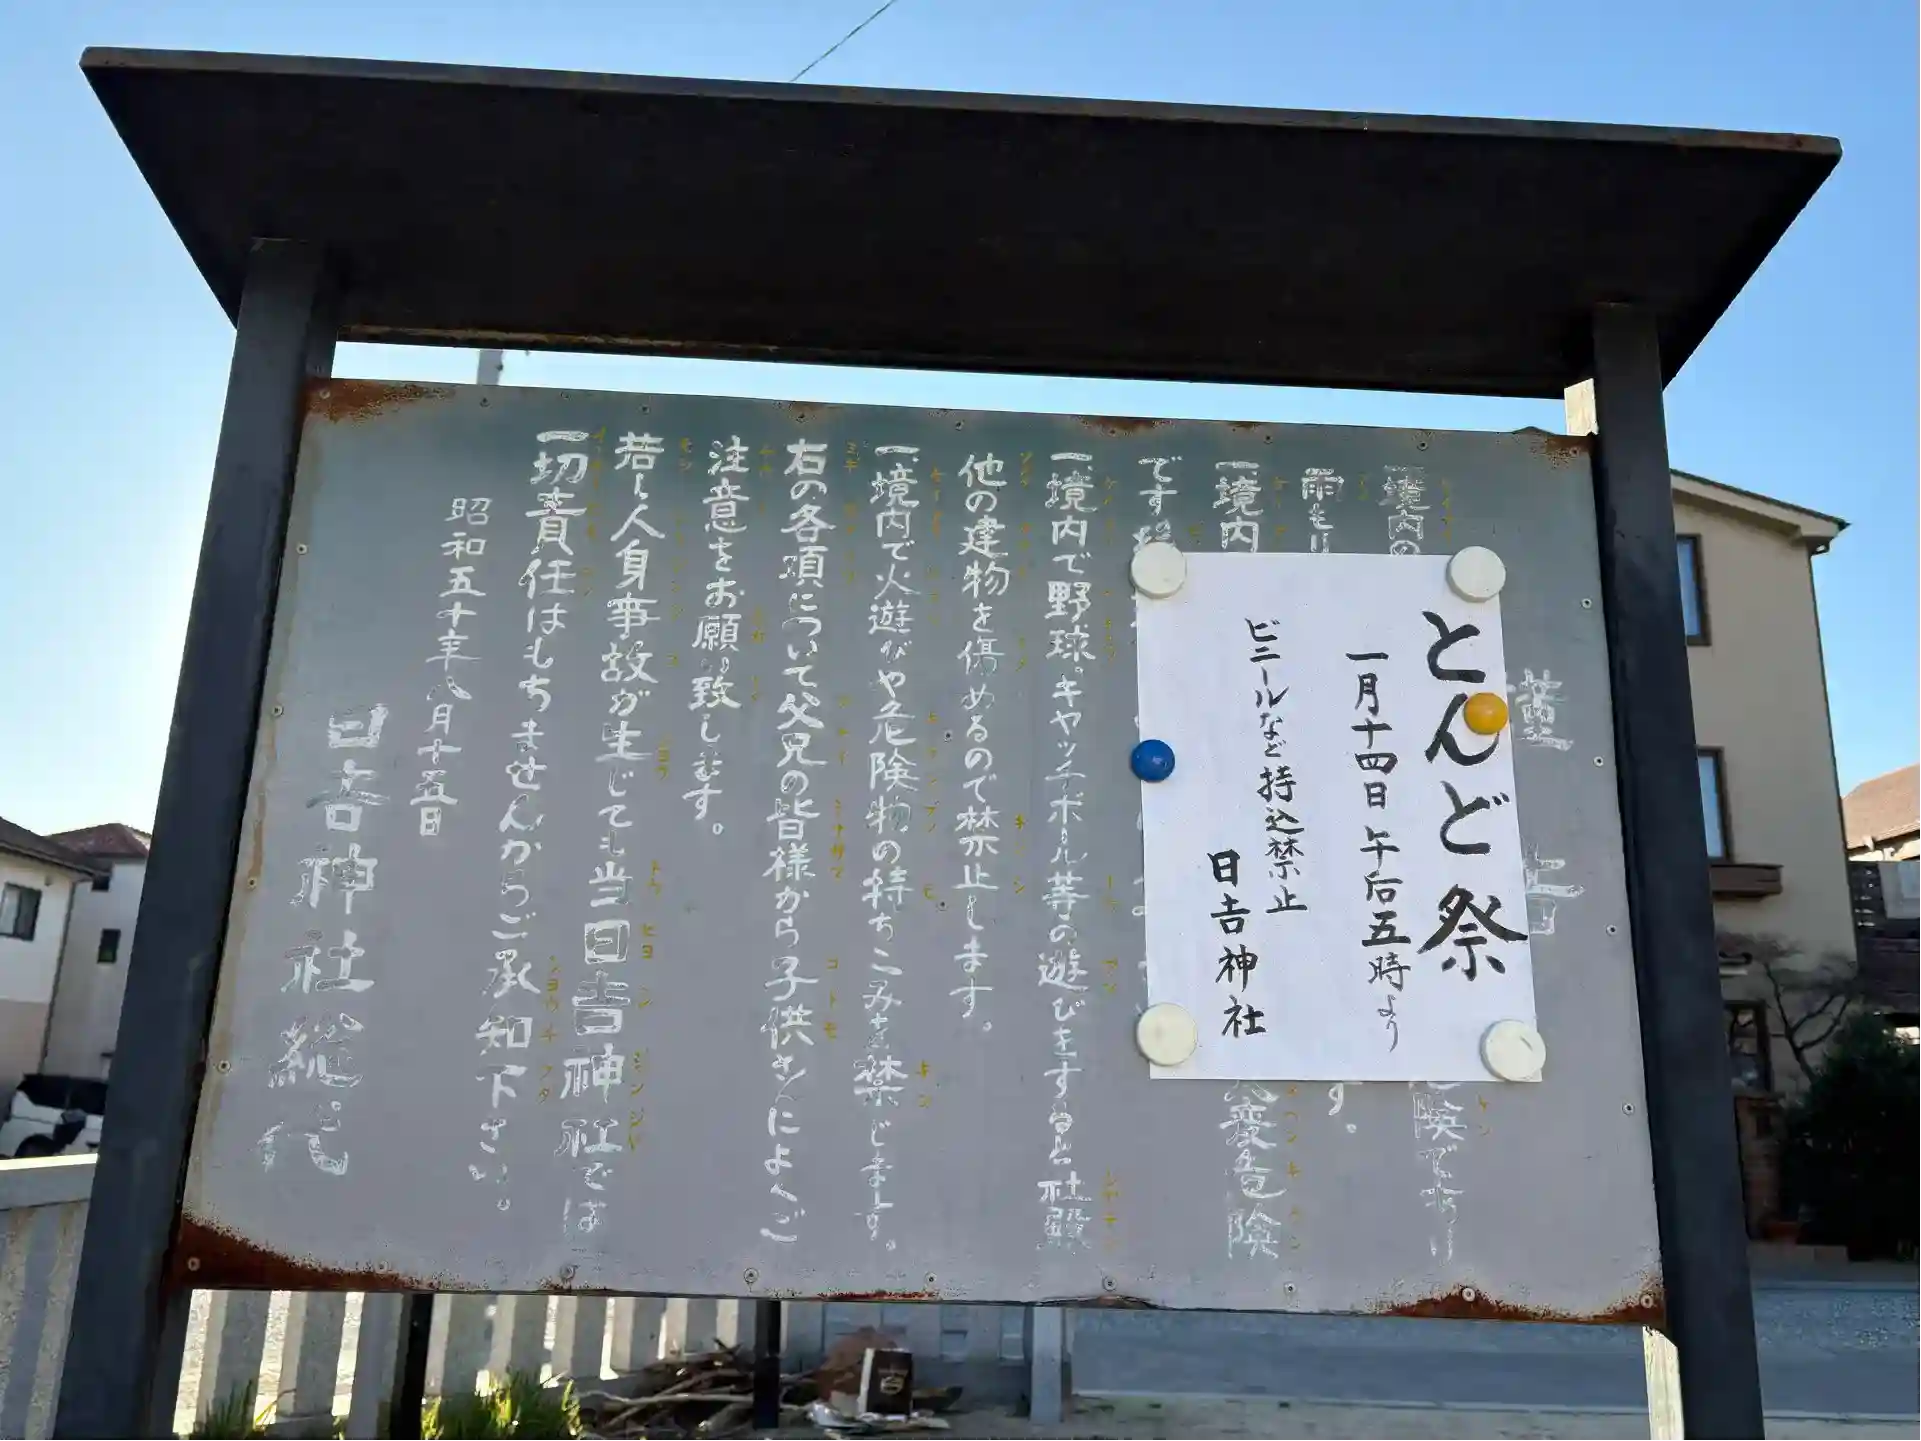 とんど祭
一月十四日午后五時より
ビニールなど持込禁止
日吉神社
謹告
境内の
険であり
雨をり
す。
一、境内
大変危険
です
一、境内で野球。キャッチボール等の遊びをすると社殿
他の建物を傷めるので禁止します。
一、境内で火遊びや危険物の持ちこみを禁じます。
右の各項について父兄の皆様から子供さんによくご
注意をお願い致します。
若し人身事故が生じても当日吉神社では
一切責任はもちませんからご承知下さい。
昭和五十年八月十五日
日吉神社総代